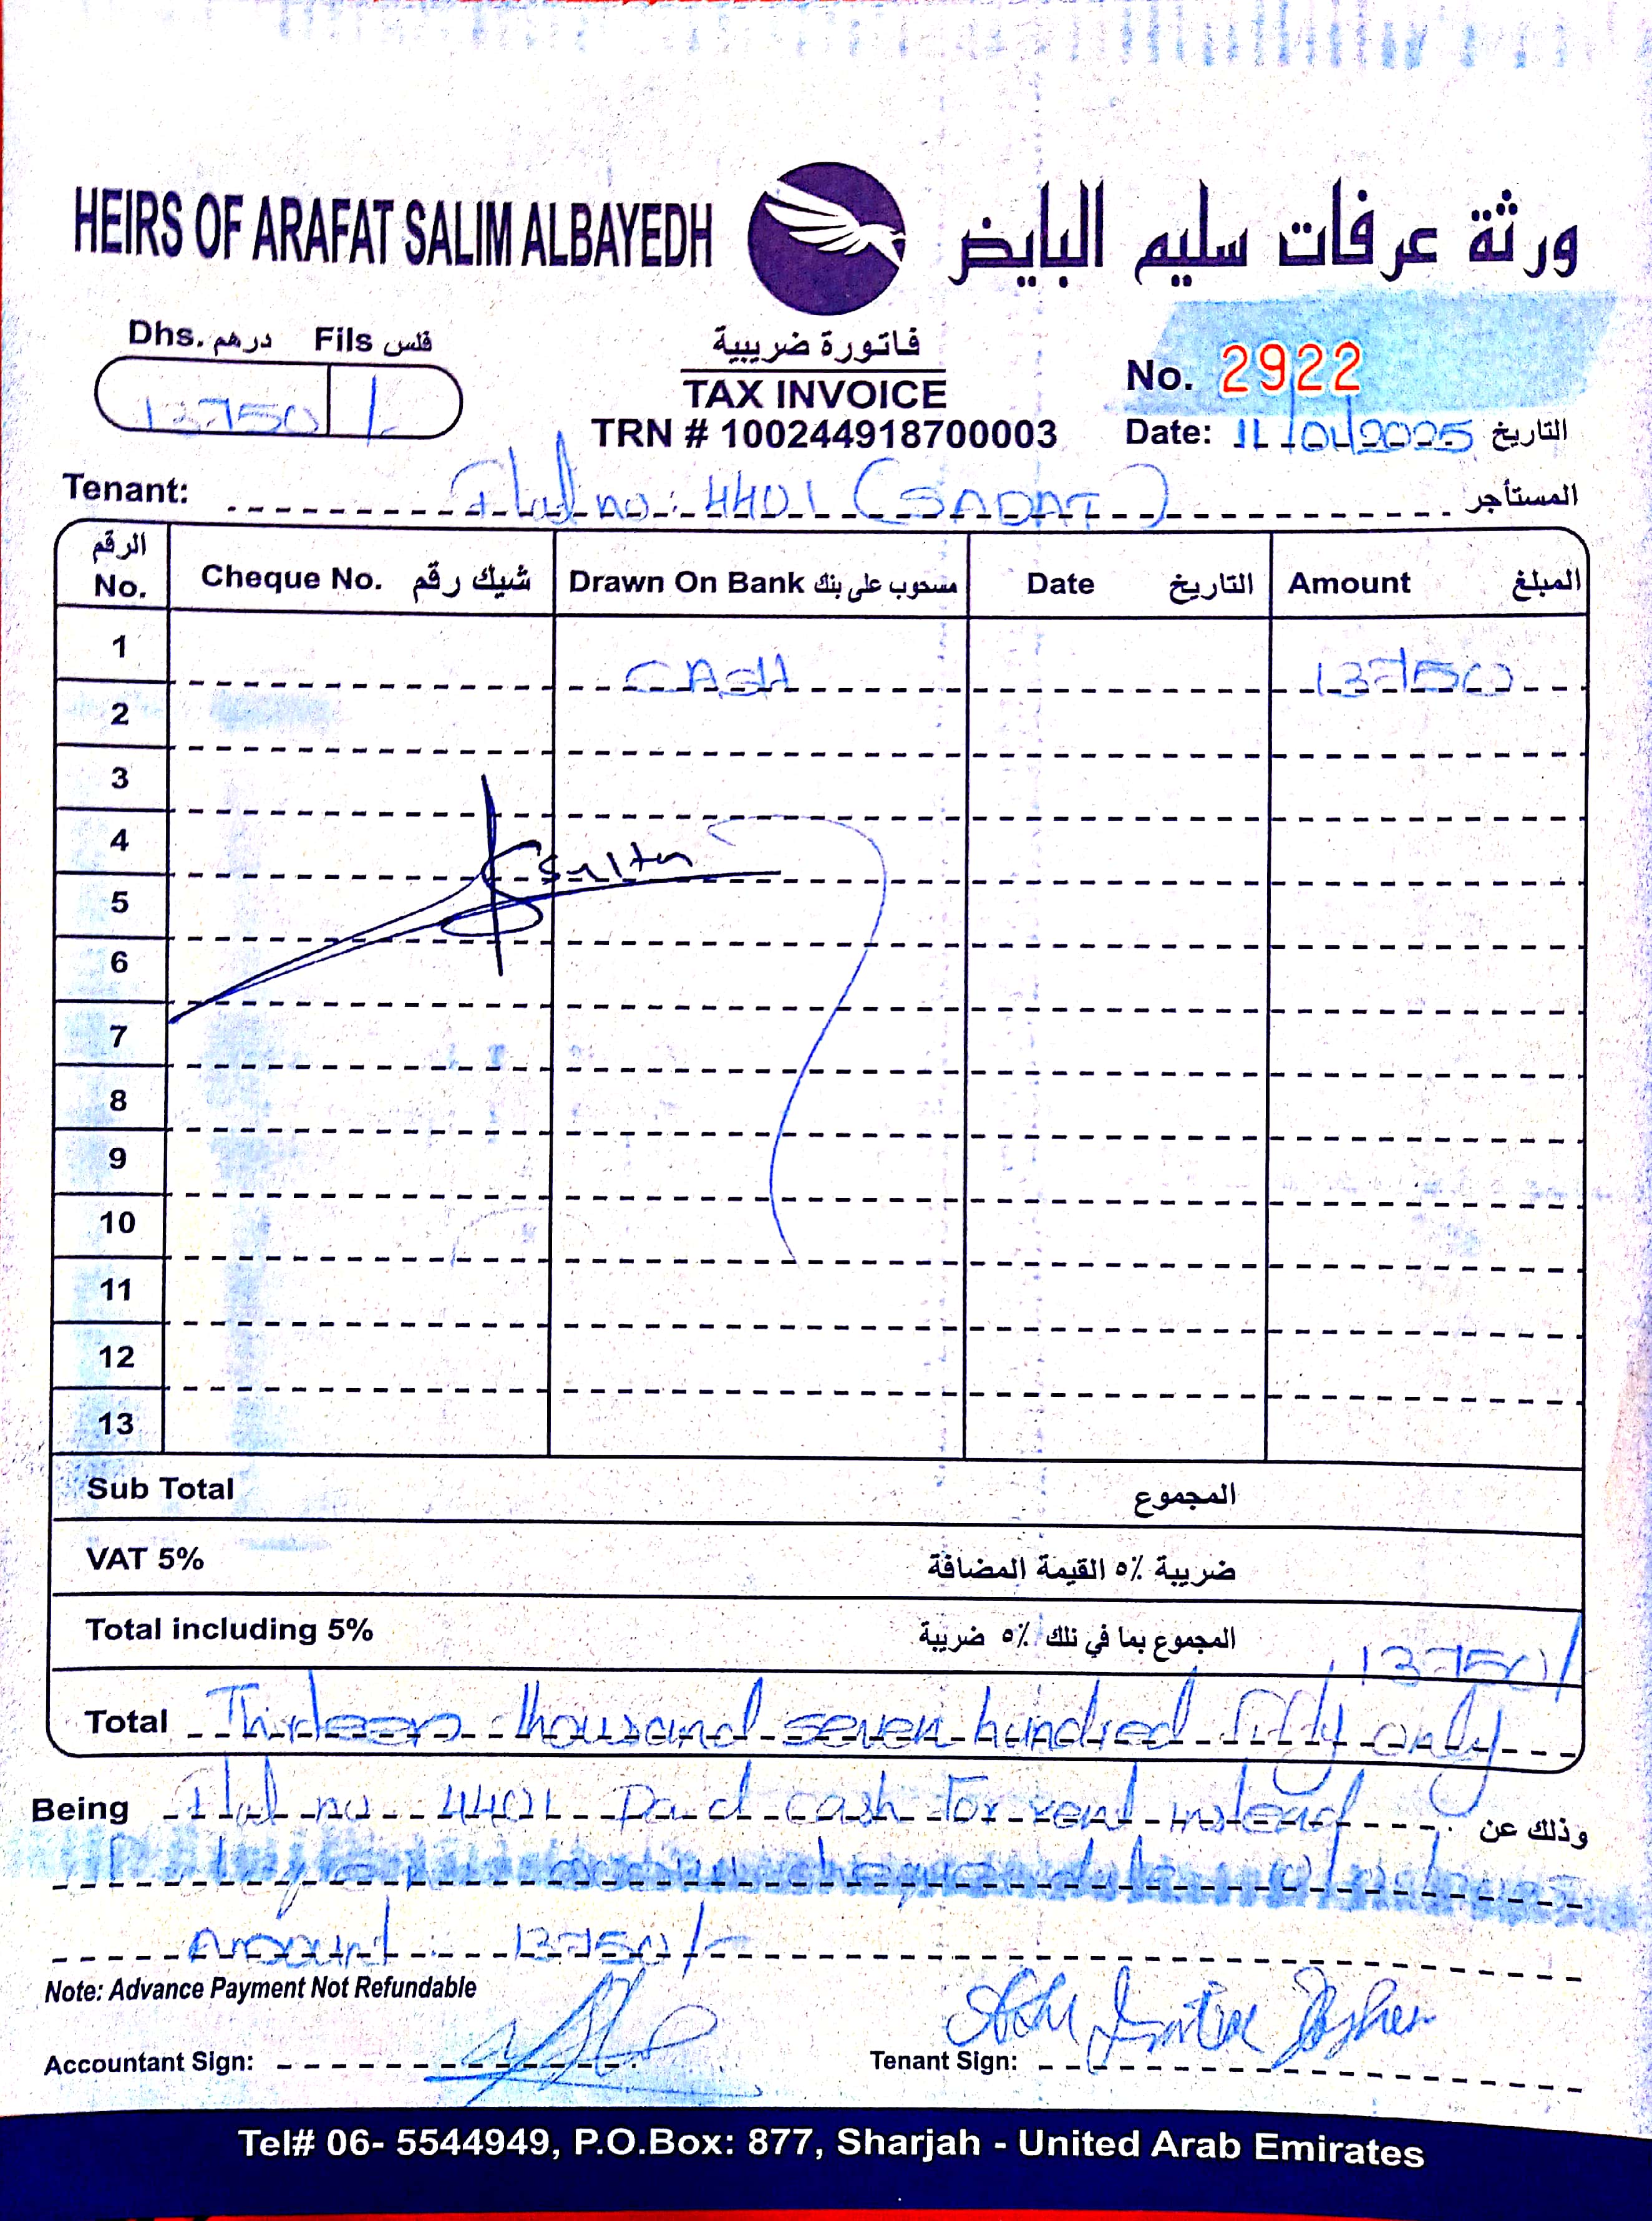 HEIRS OF ARAFAT SALIM ALBAYEDH ورثة عرفات سليم البايض
Dhs. درهم Fils فلس
13750 /-
فاتورة ضريبية
TAX INVOICE
TRN # 100244918700003
No. 2922
Date: 11/01/2025 التاريخ
Tenant: Flat no: 4401 (SADAT) المستأجر
الرقم No. Cheque No. شيك رقم Drawn On Bank مسحوب على بنك Date التاريخ Amount المبلغ
1 CASH 13750
2
3
4
5
6
7
8
9
10
11
12
13
Sub Total المجموع
VAT 5% ضريبة ٥٪ القيمة المضافة
Total including 5% المجموع بما في ذلك ٥٪ ضريبة 13750/
Total Thirteen thousand seven hundred fifty only
Being Flat no 4401 Paid cash for rent instead وذلك عن
cheque date
Amount: 13750/-
Note: Advance Payment Not Refundable
Accountant Sign: Tenant Sign:
Tel# 06- 5544949, P.O.Box: 877, Sharjah - United Arab Emirates